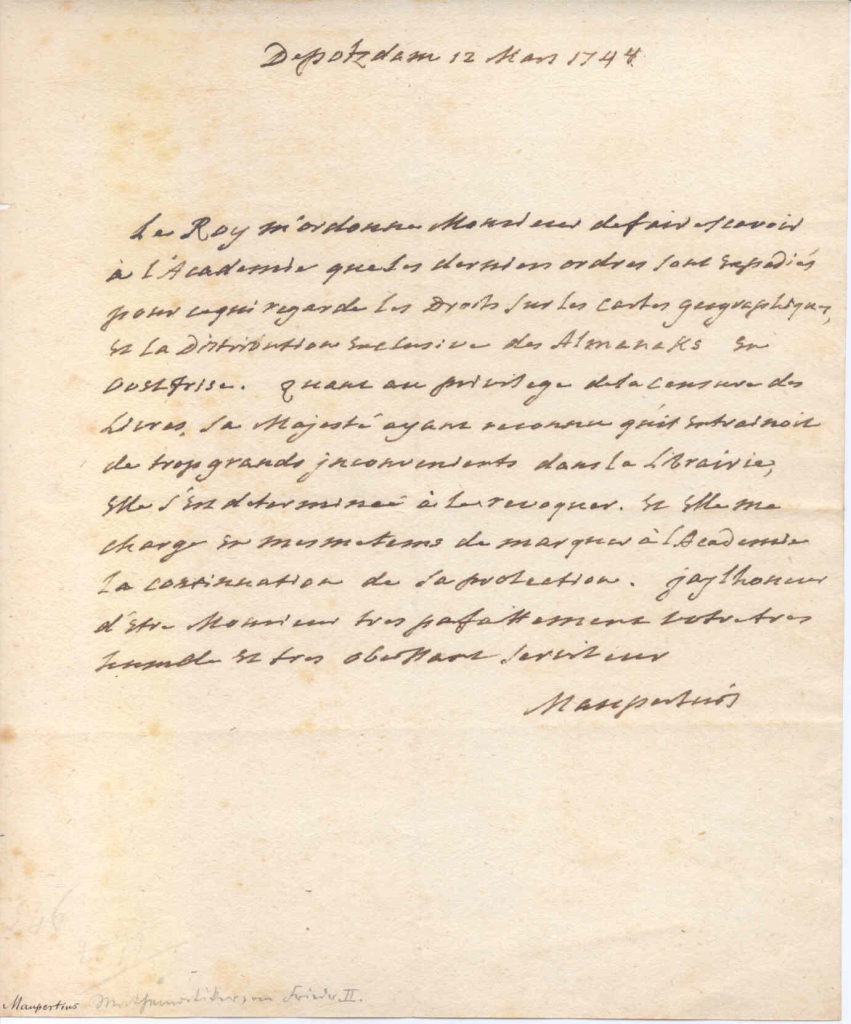 De potzdam 12 Mars 1744
Le Roy m'ordonne Monsieur de faire scavoir
à l'Academie que les derniers ordres sont expediés
pour ce qui regarde les Droits sur les cartes geographiques,
et la Distribution exclusive des Almanaks en
oostfrise. quant au privilege de la censure des
Livres, sa Majesté ayant reconnu qu'il entrainoit
de trop grands inconvenients dans la Librairie,
elle s'est determinée à le revoquer. et elle me
charge en mesme tems de marquer à l'Academie
la continuation de sa protection. jay lhoneur
d'etre Monsieur tres parfaittement votre tres
humble et tres obeissant serviteur
Maupertuis
Maupertius Mathematiker, von Friedr. II.